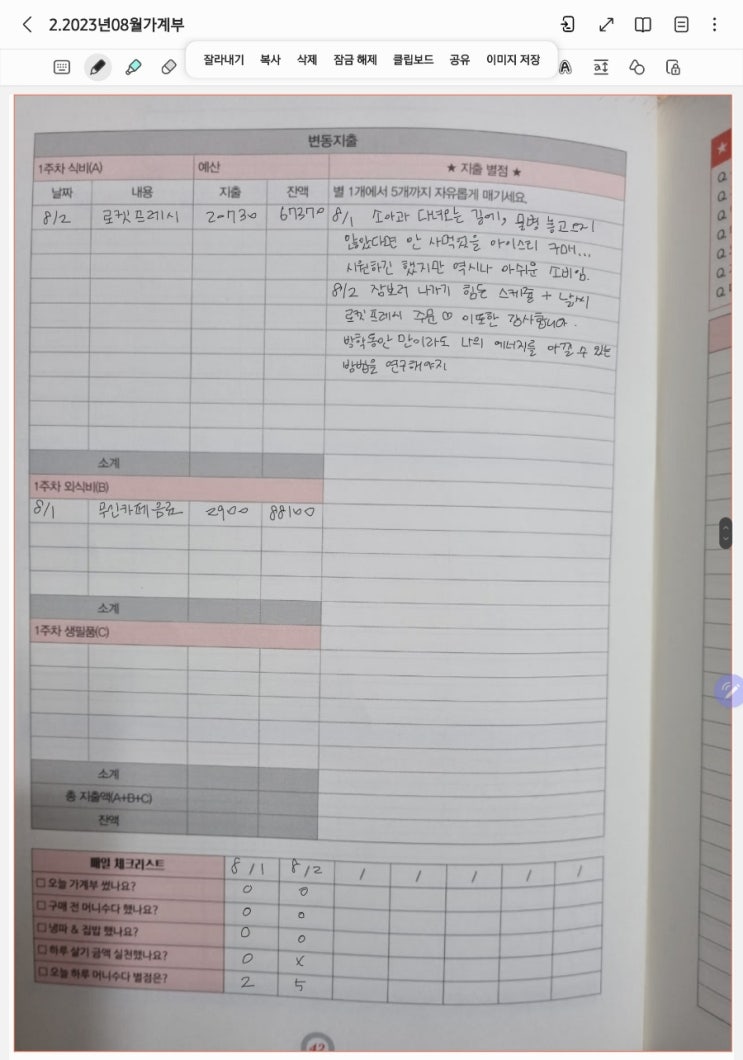 2.2023년08월가계부
잘라내기 복사 삭제 잠금 해제 클립보드 공유 이미지 저장
변동지출
1주차 식비(A) 예산 ★ 지출 별점 ★
날짜 내용 지출 잔액 별 1개에서 5개까지 자유롭게 매기세요.
8/2 로켓프레시 20730 67370 8/1 소아과 다녀오는 길에, 물병 놓고오지
않았다면 안 사먹었을 아이스티 구매...
시원하긴 했지만 역시나 아쉬운 소비임.
8/2 장보러 나가기 힘든 스케쥴 + 날씨
로켓프레시 주문 ♡ 이또한 감사합니다.
방학동안 만이라도 나의 에너지를 아낄 수 있는
방법을 연구해야지
소계
1주차 외식비(B)
8/1 무인카페음료 2900 88100
소계
1주차 생필품(C)
소계
총 지출액(A+B+C)
잔액
매일 체크리스트 8/1 8/2 / / / / /
☐ 오늘 가계부 썼나요? 0 0
☐ 구매 전 머니수다 했나요? 0 0
☐ 냉파 & 집밥 했나요? 0 0
☐ 하루 살기 금액 실천했나요? 0 X
☐ 오늘 하루 머니수다 별점은? 2 5
42
★
Q
Q
Q
Q
Q
Q
Q